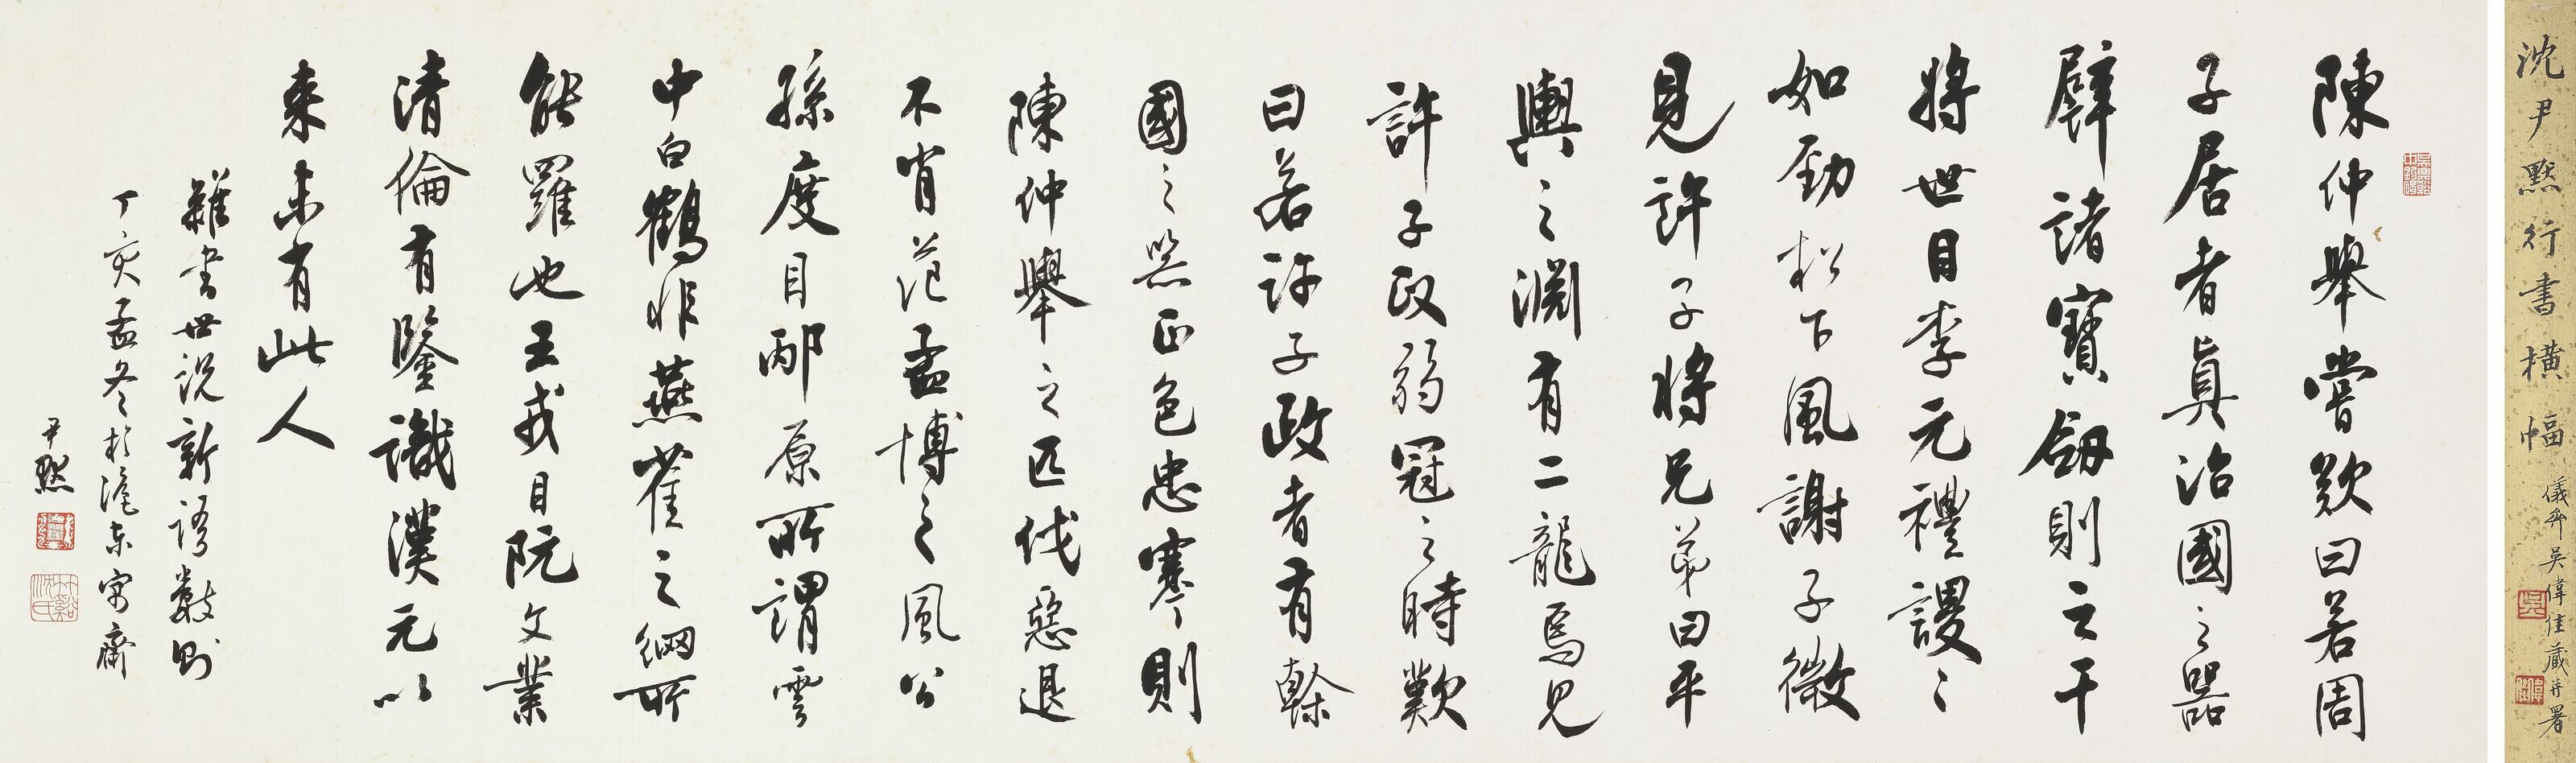 沈尹默行書橫幅
吳偉佳藏并署
陳仲舉嘗歎曰若周
子居者真治國之器
譬諸寶劒則之干
將世目李元禮謖〻
如勁松下風謝子微
見許子將兄弟曰平
輿之淵有二龍焉見
許子政弱冠之時歎
曰若許子政者有榦
國之器正色忠謇則
陳仲舉之匹伐惡退
不肖范孟博之風公
孫度目邴原所謂雲
中白鶴非燕雀之網所
能羅也王戎目阮文業
清倫有鑒識漢元以
來未有此人
雜書世說新語數則
丁亥孟冬於滬東寓齋
尹默
竹谿沈氏